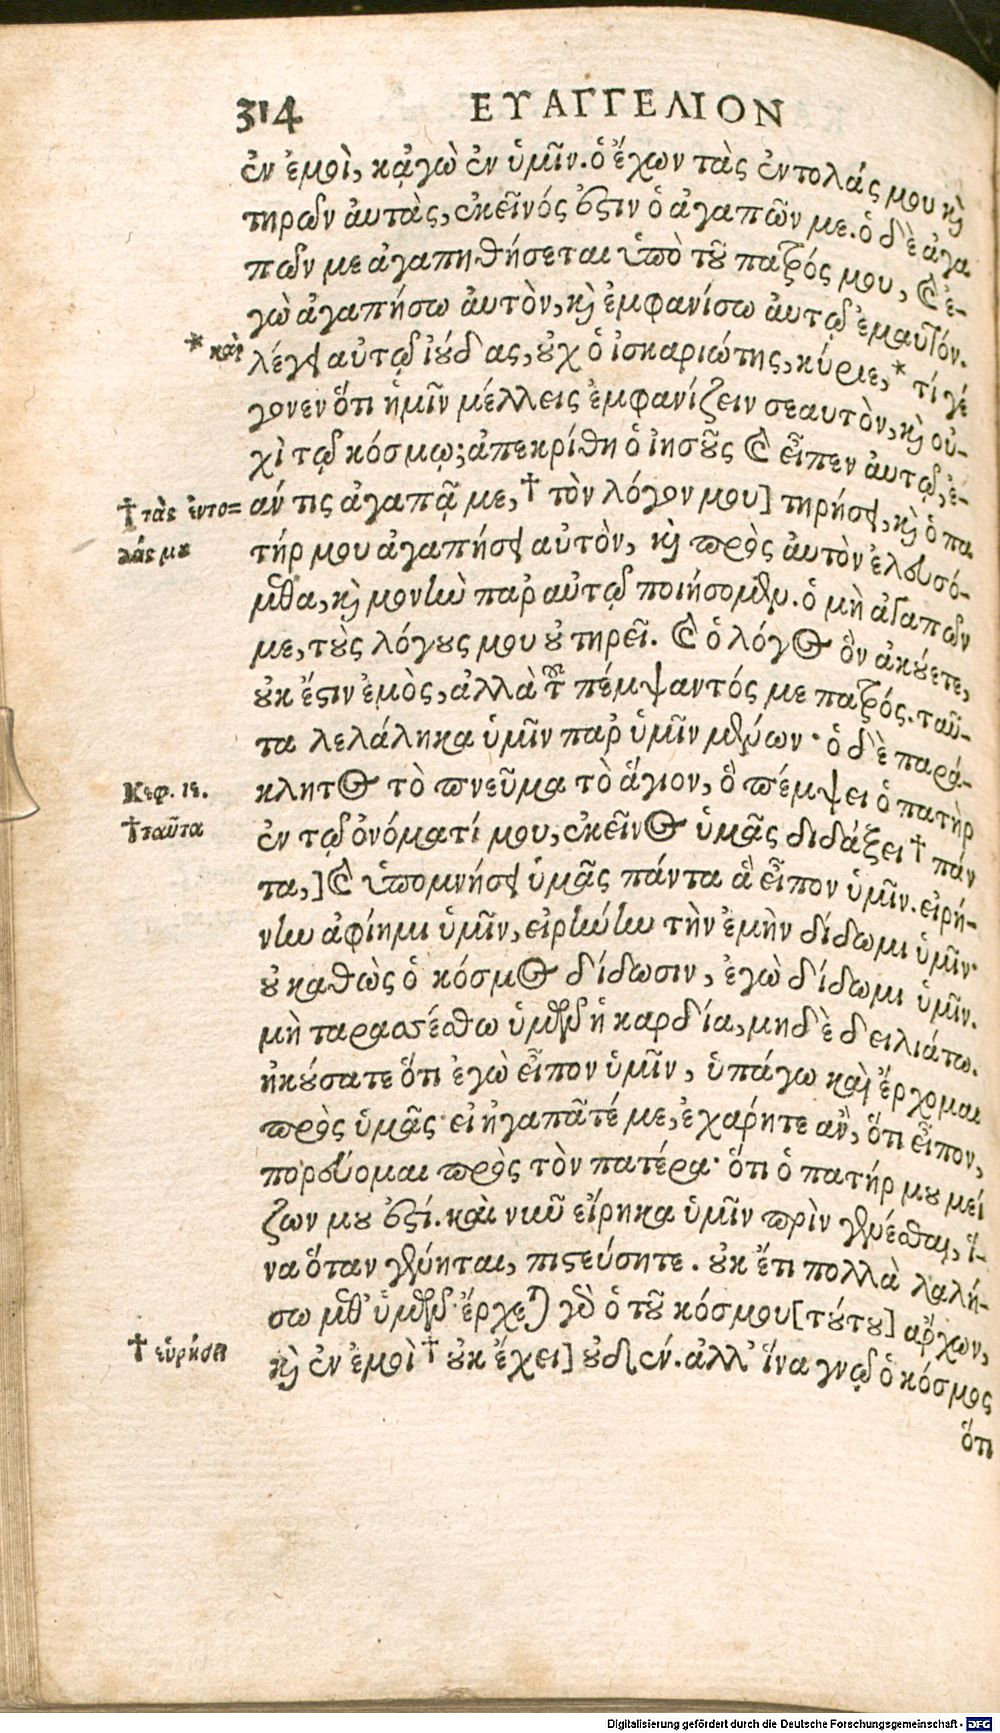 314 ΕΥΑΓΓΕΛΙΟΝ
ἐν ἐμοὶ, κἀγὼ ἐν ὑμῖν. ὁ ἔχων τὰς ἐντολάς μου καὶ
τηρῶν ἀυτὰς, ἐκεῖνός ἐστιν ὁ ἀγαπῶν με. ὁ δὲ ἀγα
πῶν με ἀγαπηθήσεται ὑπὸ τοῦ πατρός μου, καὶ ἐ-
γὼ ἀγαπήσω ἀυτὸν, καὶ ἐμφανίσω ἀυτῷ ἐμαυτόν.
* καὶ
λέγει αὐτῷ ἰούδας, οὐχ ὁ ἰσκαριώτης, κύριε, * τί γέ
γονεν ὅτι ἡμῖν μέλλεις ἐμφανίζειν σεαυτὸν, καὶ οὐ-
χὶ τῷ κόσμῳ; ἀπεκρίθη ὁ ἰησοῦς καὶ εἶπεν ἀυτῷ, ἐ-
† τὰς ἐντο=
λάς μου
άν τις ἀγαπᾷ με, † τὸν λόγον μου] τηρήσει, καὶ ὁ πα
τήρ μου ἀγαπήσει αὐτὸν, καὶ πρὸς ἀυτὸν ἐλευσό-
μεθα, καὶ μονὴν παρ αὐτῷ ποιήσομεν. ὁ μὴ ἀγαπῶν
με, τοὺς λόγους μου οὐ τηρεῖ. καὶ ὁ λόγος ὃν ἀκούετε,
οὐκ ἔστιν ἐμὸς, ἀλλὰ τοῦ πέμψαντός με πατρός. ταῦ-
τα λελάληκα ὑμῖν παρ ὑμῖν μένων· ὁ δὲ παρά-
Κεφ. ιε.
κλητος τὸ πνεῦμα τὸ ἅγιον, ὃ πέμψει ὁ πατὴρ
† ταῦτα
ἐν τῷ ὀνόματί μου, ἐκεῖνος ὑμᾶς διδάξει † πάν
τα,] καὶ ὑπομνήσει ὑμᾶς πάντα ἃ εἶπον ὑμῖν. εἰρή-
νην ἀφίημι ὑμῖν, εἰρήνην τὴν ἐμὴν δίδωμι ὑμῖν·
οὐ καθὼς ὁ κόσμος δίδωσιν, ἐγὼ δίδωμι ὑμῖν.
μὴ ταρασσέσθω ὑμῶν ἡ καρδία, μηδὲ δειλιάτω.
ἠκούσατε ὅτι ἐγὼ εἶπον ὑμῖν, ὑπάγω καὶ ἔρχομαι
πρὸς ὑμᾶς· εἰ ἠγαπᾶτέ με, ἐχαρήτε ἂν, ὅτι εἶπον,
πορεύομαι πρὸς τὸν πατέρα· ὅτι ὁ πατήρ μου μεί
ζων μου ἐστί. καὶ νῦν εἴρηκα ὑμῖν πρὶν γενέσθαι, ἵ-
να ὅταν γένηται, πιστεύσητε. οὐκ ἔτι πολλὰ λαλή-
σω μεθ' ὑμῶν· ἔρχεται γὰρ ὁ τοῦ κόσμου [τούτου] ἄρχων,
† εὑρήσει
καὶ ἐν ἐμοὶ † οὐκ ἔχει] οὐδέν. ἀλλ' ἵνα γνῷ ὁ κόσμος
ὅτι
Digitalisierung gefördert durch die Deutsche Forschungsgemeinschaft - DFG